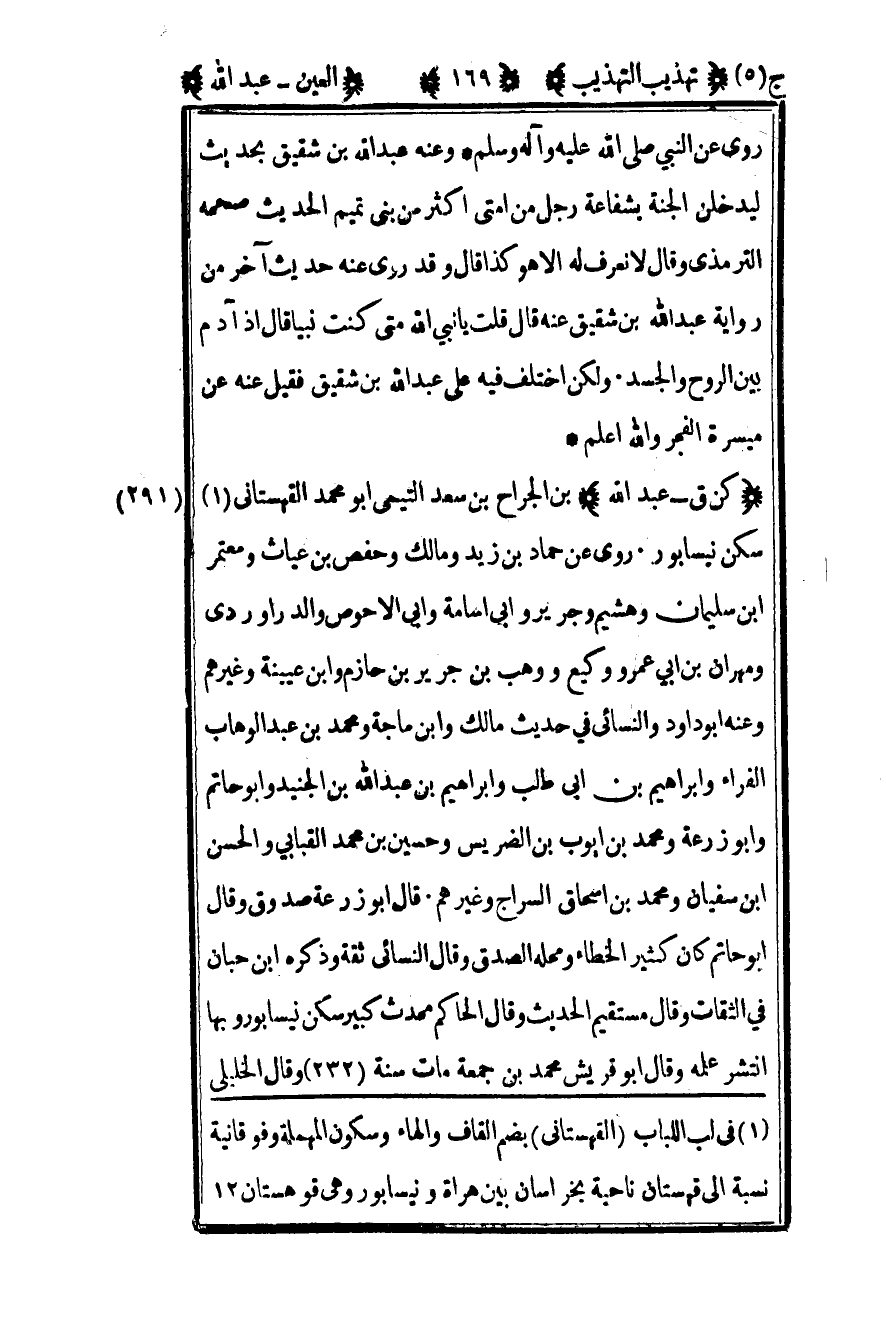 ج(٥) ﴿ تهذيب التهذيب ﴾ ﴿ ١٦٩ ﴾ ﴿ العين - عبد الله ﴾
روى عن النبي صلى الله عليه وآله وسلم * وعنه عبدالله بن شقيق بحديث
ليدخلن الجنة بشفاعة رجل من امتى اكثر من بنى تميم الحديث صححه
الترمذى وقال لا نعرف له الا هو كذا قال و قد روى عنه حديث آخر من
رواية عبدالله بن شقيق عنه قال قلت يا نبي الله متى كنت نبيا قال اذ آدم
بين الروح والجسد · ولكن اختلف فيه على عبدالله بن شقيق فقيل عنه عن
ميسرة الفجر والله اعلم *
﴿ كن ق - عبد الله ﴾ بن الجراح بن سعد التيمى ابو محمد القهستانى (١) (٢٩١)
سكن نيسابور · روى عن حماد بن زيد ومالك وحفص بن غياث ومعتمر
ابن سليمان وهشيم وجرير و ابي اسامة وابي الاحوص والدراوردى
ومهران بن ابي عمرو وكيع و وهب بن جرير بن حازم وابن عيينة وغيرهم
وعنه ابوداود والنسائى في حديث مالك وابن ماجة ومحمد بن عبدالوهاب
الفراء وابراهيم بن ابى طالب وابراهيم بن عبدالله بن الجنيد وابو حاتم
وابو زرعة ومحمد بن ايوب بن الضريس وحسين بن محمد القبابي و الحسن
ابن سفيان ومحمد بن اسحاق السراج وغيرهم · قال ابو زرعة صدوق وقال
ابو حاتم كان كثير الخطاء ومحله الصدق وقال النسائى ثقة وذكره ابن حبان
في الثقات وقال مستقيم الحديث وقال الحاكم محدث كبير سكن نيسابور و بها
انتشر علمه وقال ابو قريش محمد بن جمعة مات سنة (٢٣٢) وقال الخليلى
(١) فى لب اللباب (القهستانى) بضم القاف والهاء وسكون المهملة وفوقانية
نسبة الى قهستان ناحية بخراسان بين هراة و نيسابور وهى قوهستان ١٢